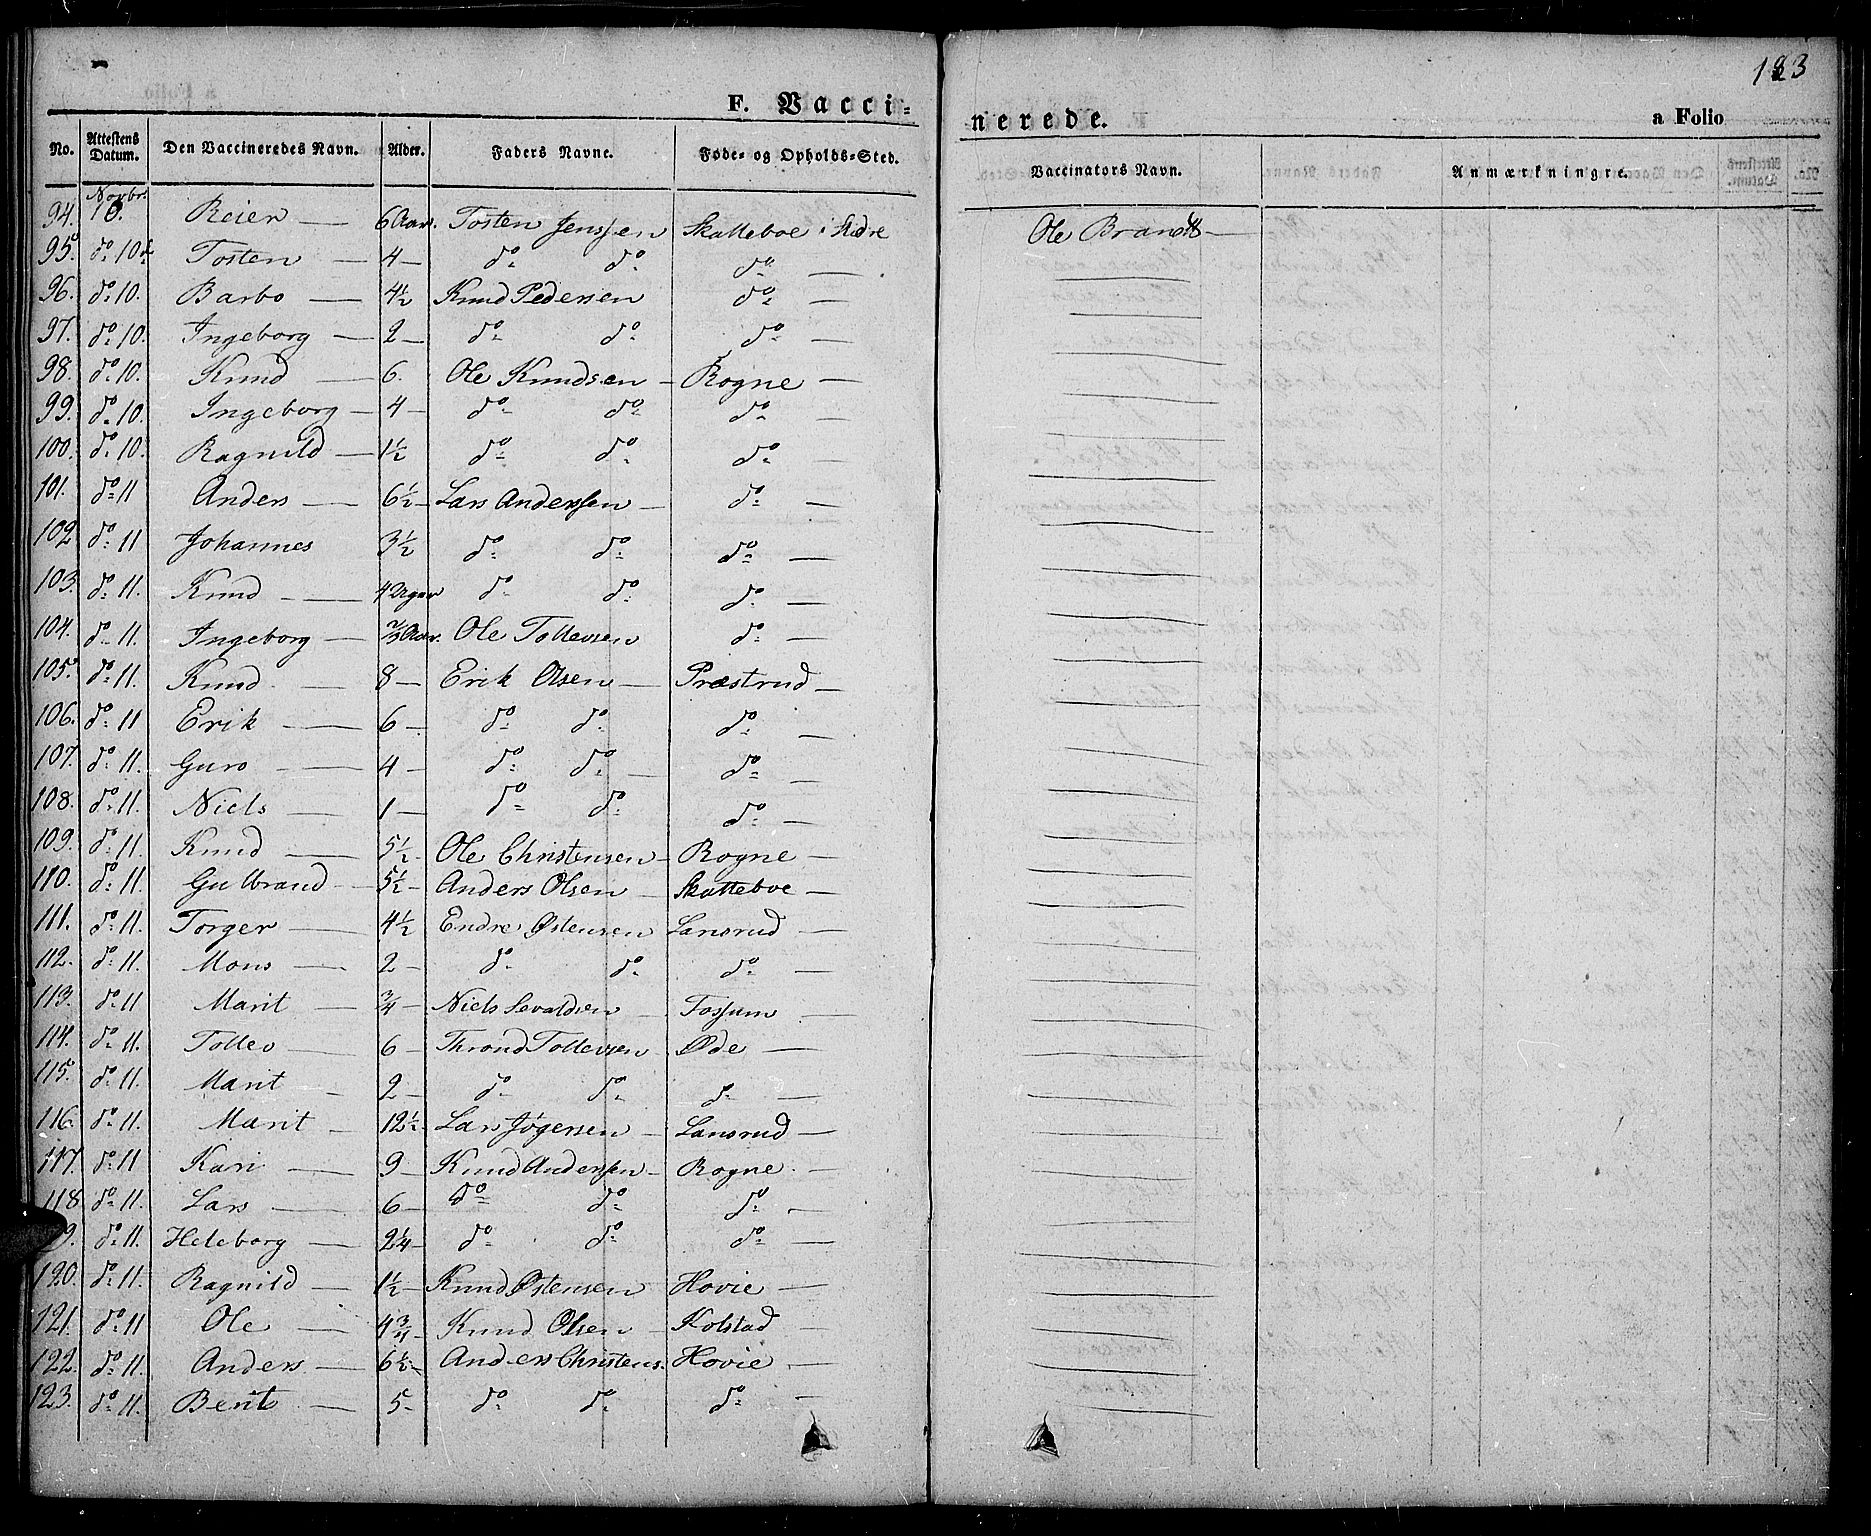 123
F. Vacci-
nerede.
a Folio
No. Attestens Datum. Den Vaccineredes Navn. Alder. Faders Navne. Føde- og Opholds-Sted. Vaccinators Navn. Anmærkninger.
94. Novbr. 10. Reier — 6 Aar. Tosten Jenssen Skatteboe i Slidre Ole Brandt —
95. do 10 Tosten — 4 — do do do —
96. do 10. Barbo — 4½ Knud Pedersen do —
97. do 10. Ingeborg — 2 — do do do —
98. do 10. Knud — 6. Ole Knudsen — Rogne —
99. do 10. Ingeborg — 4 — do do do —
100. do 10. Ragnild — 1½ do do do —
101. do 11 Anders — 6½ — Lars Anderssen — do —
102 do 11 Johannes 3½ do do do —
103. do 11. Knud — 4 Uger do do do —
104. do 11. Ingeborg — Aar. Ole Tollevsen do —
105. do 11. Knud — 8 — Erik Olsen — Præstrud —
106. do 11 Erik — 6 — do do do —
107. do 11. Guro — 4 — do do — do —
108. do 11. Niels — 1 — do do do —
109. do 11. Knud — 5½ — Ole Christensen — Rogne —
110. do 11. Gulbrand — 5½ — Anders Olsen — Skatteboe —
111. do 11. Torger — 4½ Endre Østensen Lansrud —
112. do 11. Mons — 2 — do do do —
113. do 11 Marit — ¾ Niels Sevaldsen — Fossum —
114. do 11. Tollev — 6 — Thrond Tollevsen Øde —
115. do 11. Marit — 2 — do do do —
116. do 11. Marit — 12½ — Lars Jøgersen — Lansrud —
117. do 11 Kari — 9 — Knud Anderssen — Rogne —
118 do 11. Lars — 6 — do do do —
9. do 11. Heleborg — 2¼ — do do do —
120. do 11. Ragnild — 1½ — Knud Østensen Hovie —
121. do 11 Ole — 4¾ — Knud Olsen — Kolstad —
122. do 11. Anders — 6½ — Anders Christens. Hovie —
123. do 11. Berit — 5 — do do do —